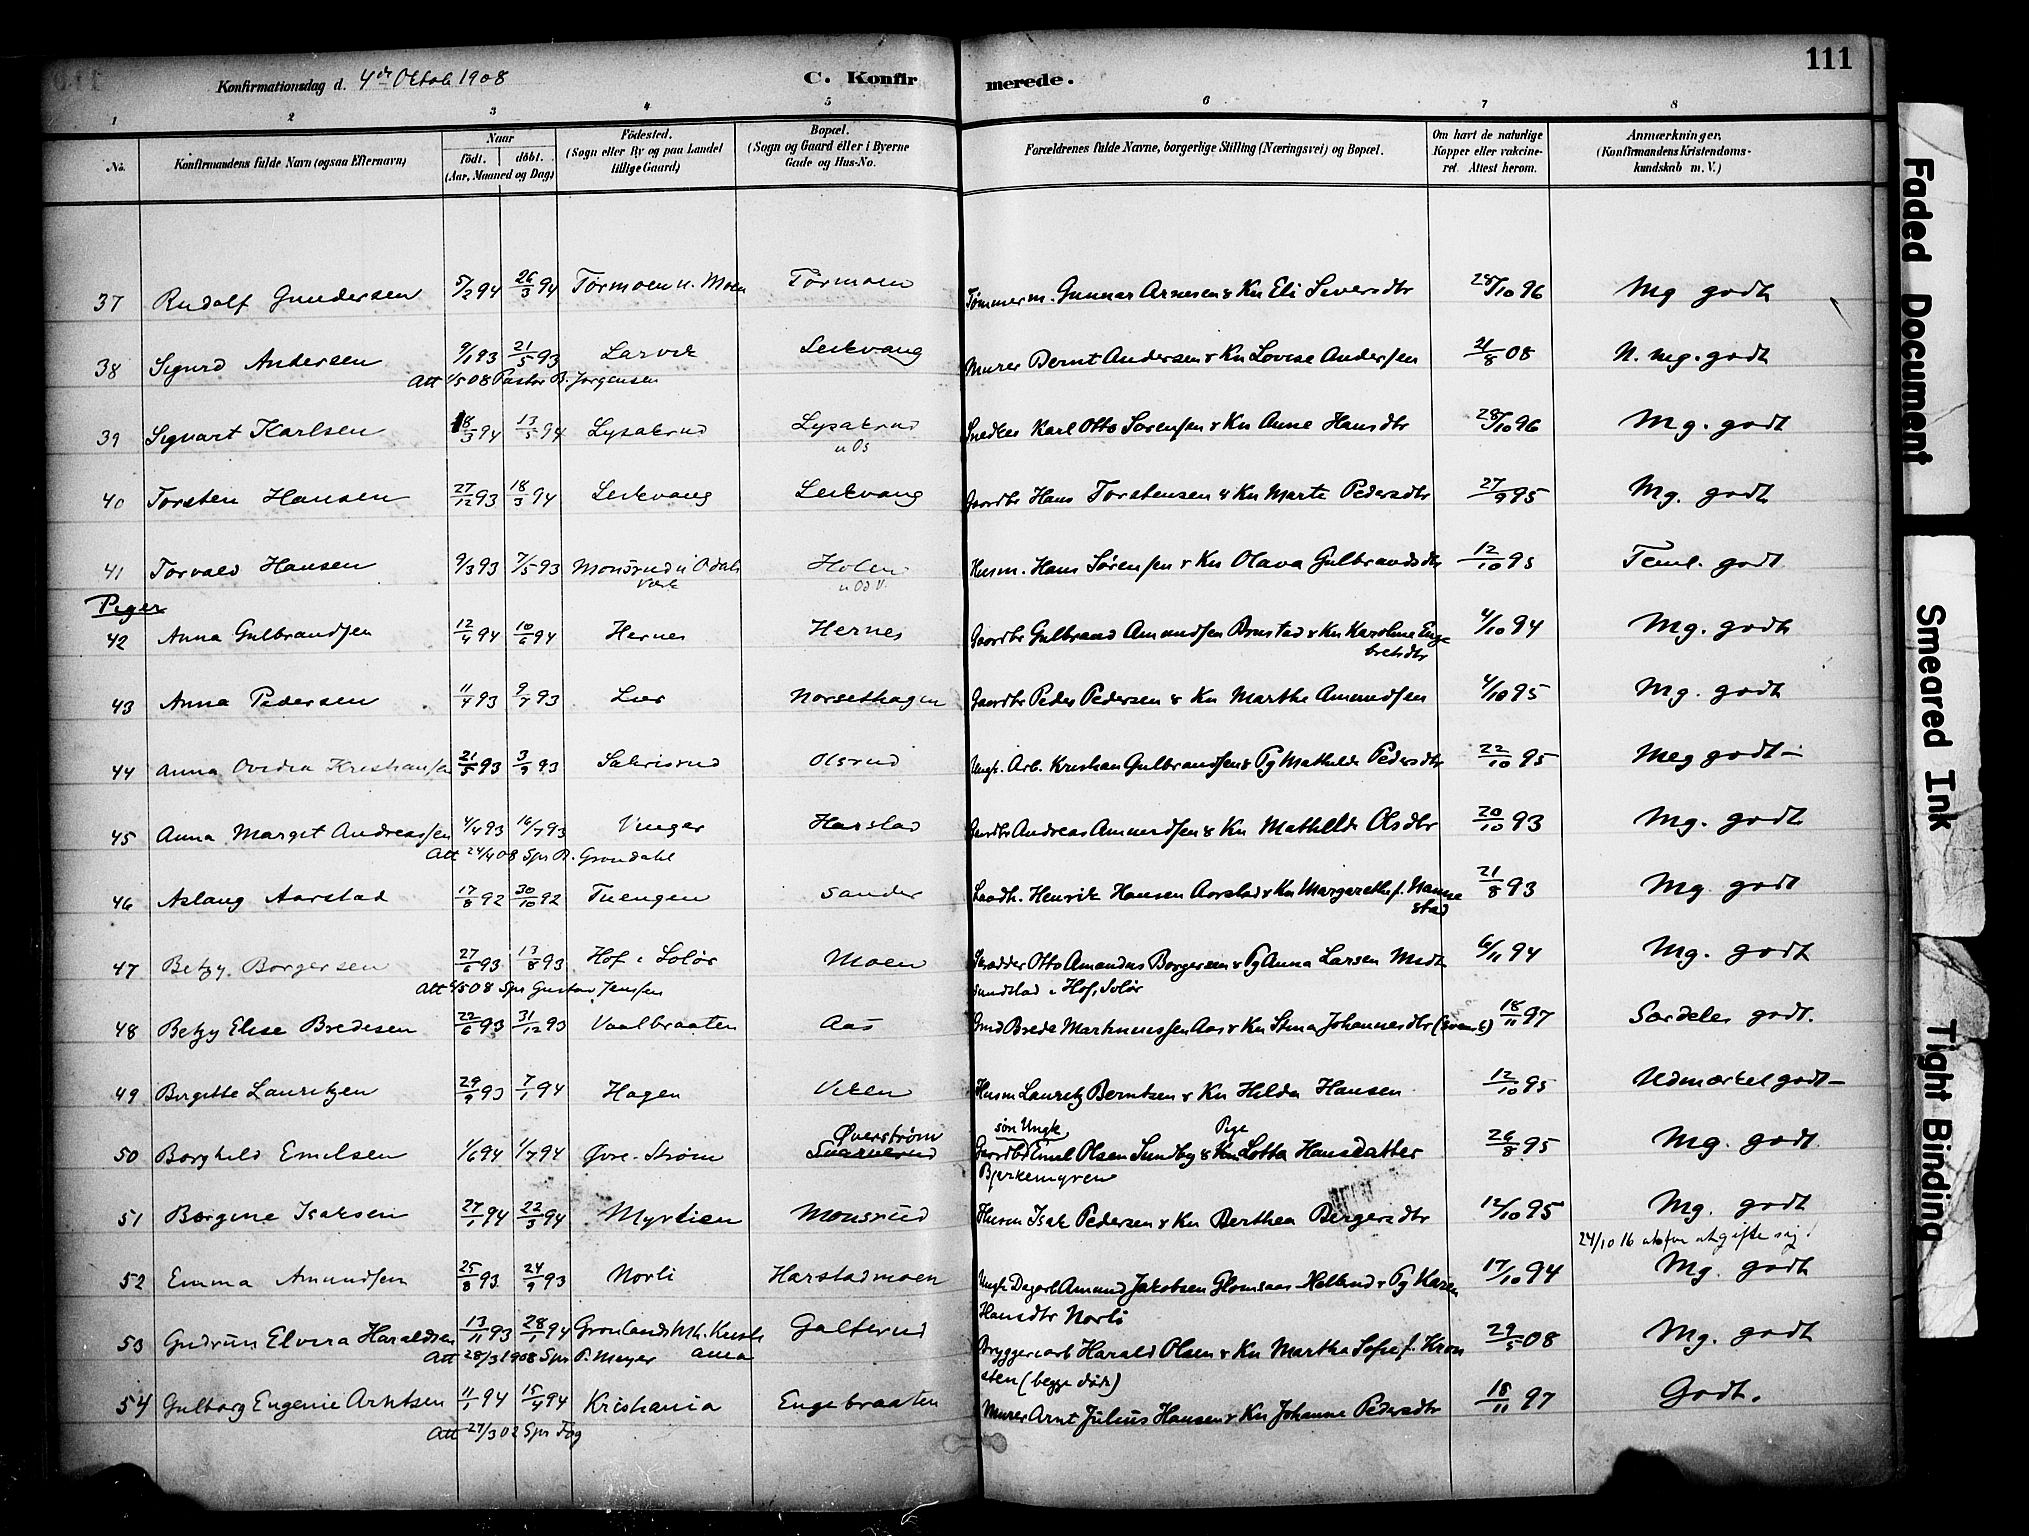 111
Konfirmationsdag d. 4de Oktob 1908 C. Konfirmerede.
1 2 3 4 5 6 7 8
No. Konfirmandens fulde Navn (ogsaa Efternavn) Naar födt. döbt. (Aar, Maaned og Dag) Födested. (Sogn eller By og paa Landet tillige Gaard) Bopæl. (Sogn og Gaard eller i Byerne Gade og Hus-No. Forældrenes fulde Navne, borgerlige Stilling (Næringsvei) og Bopæl. Om havt de naturlige Kopper eller vakcineret. Attest herom. Anmærkninger. (Konfirmandens Kristendomskundskab m. V.)
37 Rudolf Gundersen 5/2 94 26/3 94 Törmoen u. Moen Törmoen Tömmerm. Gunnar Arnesen & Kn Eli Siversdtr 28/10 96 Mg godt
38 Sigurd Andersen 9/1 93 21/5 93 Larvik Leikvang Murer Bernt Andersen & Kn Lovise Andersen 21/8 08 N. mg. godt
Att 4/5 08 Pastor B. Jörgensen
39 Sigvart Karlsen 18/3 94 13/5 94 Lysakrud Lysakrud u Os Snedker Karl Otto Sörensen & Kn Anne Hansdtr 28/10 96 Mg. godt
40 Torsten Hansen 27/12 93 18/3 94 Leikvang Leikvang Gaardbr Hans Torstensen & Kn Marte Pedersdtr 27/9 95 Mg. godt
41 Torvald Hansen 9/3 93 7/5 93 Monsrud i Odals Verk Holen u Od V. Husm. Hans Sørensen & Kn Olava Gulbrandsdtr 12/10 95 Teml. godt
Piger
42 Anna Gulbrandsen 12/4 94 10/6 94 Hernes Hernes Gaardbr Gulbrand Amundsen Brustad & Kn Karoline Engebretsdtr 4/10 94 Mg. godt
43 Anna Pedersen 11/4 93 9/7 93 Lier Norsethagen Gaardbr Peder Pedersen & Kn Marthe Amundsen 4/10 95 Mg. godt
44 Anna Ovedia Kristiansen 21/5 93 3/9 93 Sakrisrud Olsrud Ungk. Arb. Kristian Gulbrandsen & Pg Mathilde Pedersdtr 22/10 95 Meg godt-
45 Anna Margit Andreassen 4/4 93 16/7 93 Vinger Harstad Gardbr Andreas Amundsen & Kn Mathilde Olsdtr 20/10 93 Mg. godt
Att 24/4 08 Spr B. Grøndahl
46 Aslaug Aarstad 17/8 92 30/10 92 Tuengen Sander Landh. Henrik Hansen Aarstad & Kn Margarethe f. Nannestad 21/8 93 Mg. godt
47 Betzy Borgersen 27/6 93 13/8 93 Hof i Solör Moen Skrædder Otto Amandus Borgersen & Pg Anna Larsen Midtsundstad i Hof, Solör 6/11 94 Mg. godt
Att 4/5 08 Spr Gustav Jensen
48 Betzy Elise Bredesen 22/6 93 31/12 93 Vaalbraaten Aas Grmd Brede Martinussen Aas & Kn Stina Johannesdtr (svensk) 18/11 97 Særdeles godt.
49 Birgitte Lauritzen 29/9 93 7/1 94 Hagen Viken Husm Lauritz Berntsen & Kn Hilda Hansen 12/10 95 Udmærket godt-
50 Borghild Emilsen 1/6 94 1/7 94 Øvre-Strøm Øverstrøm Svarverud sön Ungk Pige Gaardbr Emil Olsen Sundby & Kn Lotta Hansdatter Bjerkemyren 26/8 95 Mg. godt
51 Borgine Isaksen 27/1 94 22/3 94 Myrstien Monsrud Husm Isak Pedersen & Kn Berthea Bergersdtr 12/10 95 Mg. godt
24/10 16 at gifte sig.
52 Emma Amundsen 25/8 93 24/9 93 Norli Harstadmoen Ungk Dagarb Amund Jakobsen & Pg Karen Hansdtr Norli 17/10 94 Mg. godt
53 Gudrun Elvira Haraldsen 13/11 93 28/1 94 Grönlands Mh. Kristiania Galterud Bryggeriarb Harald Olsen & Kn Martha Sofie f. (begge döde) 29/5 08 Mg. godt
Att 28/3 1908 Spr P. Meyer
54 Gulborg Eugenie Arntsen 11/1 94 15/4 94 Kristiania Engebraaten Murer Arnt Julius Hansen & Kn Johanne Pedersdtr 18/11 97 Godt.
Att 27/3 02 Spr Fog
Faded Document
Smeared Ink
Tight Binding